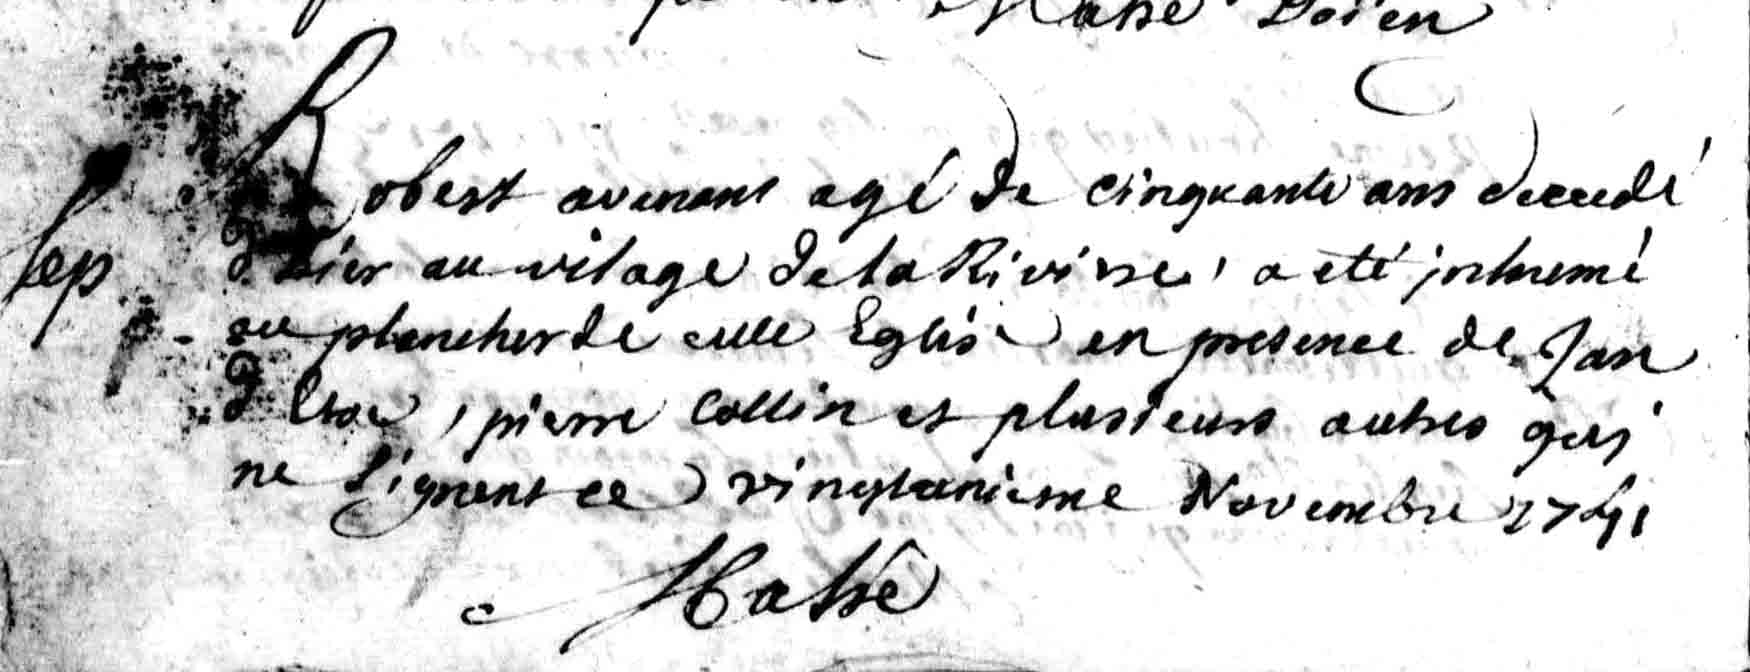 Masse Doien
Robert avenant agé de cinquante ans decedé
sep d'hier au vilage de la Riviere, a eté inhumé
au plancher de cette Eglise en presence de Jan
pierre Collin et plusieurs autres qui
ne signent ce vingtunieme Novembre 1741
Masse